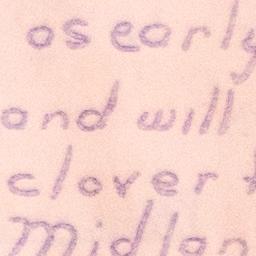 as early
and will
clover
Midlan